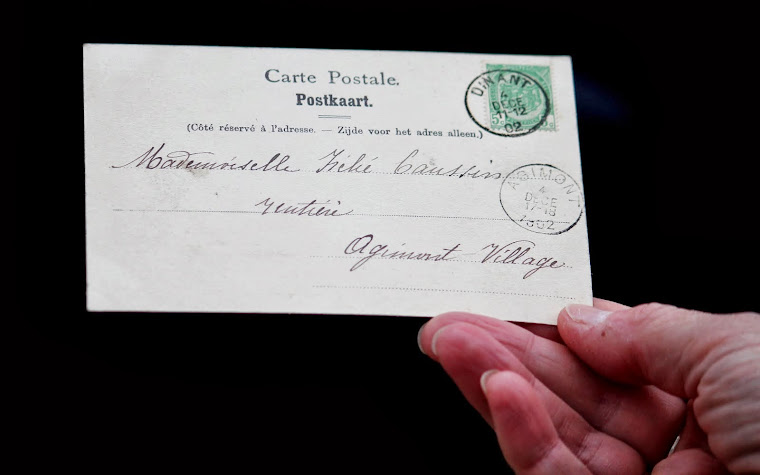 Carte Postale.
Postkaart.
(Côté réservé à l'adresse. — Zijde voor het adres alleen.)
DINANT
4
DECE
11-12
02
Mademoiselle
AGIMONT
4
DECE
17-18
1902
rentière
Agimont Village